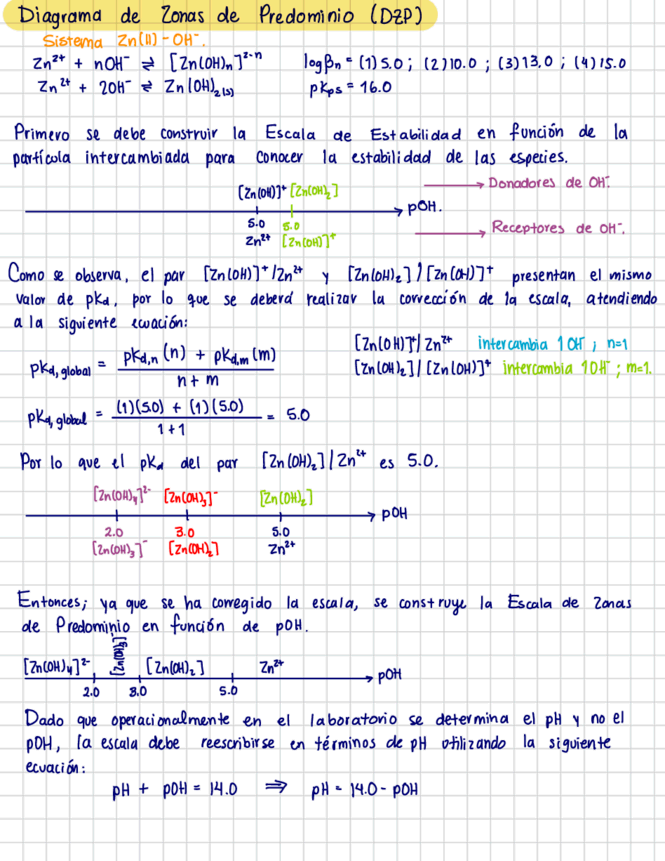 Diagrama de Zonas de Predominio (DZP)
Sistema Zn(II) - OH⁻.
Zn²⁺ + nOH⁻ ⇌ [Zn(OH)ₙ]²⁻ⁿ logβn = (1) 5.0 ; (2)10.0 ; (3)13.0 ; (4)15.0
Zn²⁺ + 2OH⁻ ⇌ Zn(OH)₂(s) pKps = 16.0
Primero se debe construir la Escala de Estabilidad en función de la
partícula intercambiada para conocer la estabilidad de las especies.
[Zn(OH)]⁺ [Zn(OH)₂] → Donadores de OH⁻.
→ pOH.
5.0 5.0 → Receptores de OH⁻.
Zn²⁺ [Zn(OH)]⁺
Como se observa, el par [Zn(OH)]⁺/Zn²⁺ y [Zn(OH)₂]/[Zn(OH)]⁺ presentan el mismo
valor de pKd, por lo que se deberá realizar la corrección de la escala, atendiendo
a la siguiente ecuación:
pKd,global = pKd,n (n) + pKd,m (m) / n + m [Zn(OH)]⁺/Zn²⁺ intercambia 1 OH⁻ ; n=1
[Zn(OH)₂]/[Zn(OH)]⁺ intercambia 1OH⁻ ; m=1.
pKd,global = (1)(5.0) + (1)(5.0) / 1+1 = 5.0
Por lo que el pKd del par [Zn(OH)₂]/Zn²⁺ es 5.0.
[Zn(OH)₄]²⁻ [Zn(OH)₃]⁻ [Zn(OH)₂]
→ pOH
2.0 3.0 5.0
[Zn(OH)₃]⁻ [Zn(OH)₂] Zn²⁺
Entonces; ya que se ha corregido la escala, se construye la Escala de Zonas
de Predominio en función de pOH.
[Zn(OH)₄]²⁻ [Zn(OH)₃]⁻ [Zn(OH)₂] Zn²⁺
→ pOH
2.0 3.0 5.0
Dado que operacionalmente en el laboratorio se determina el pH y no el
pOH, la escala debe reescribirse en términos de pH utilizando la siguiente
ecuación:
pH + pOH = 14.0 ⇒ pH = 14.0 - pOH